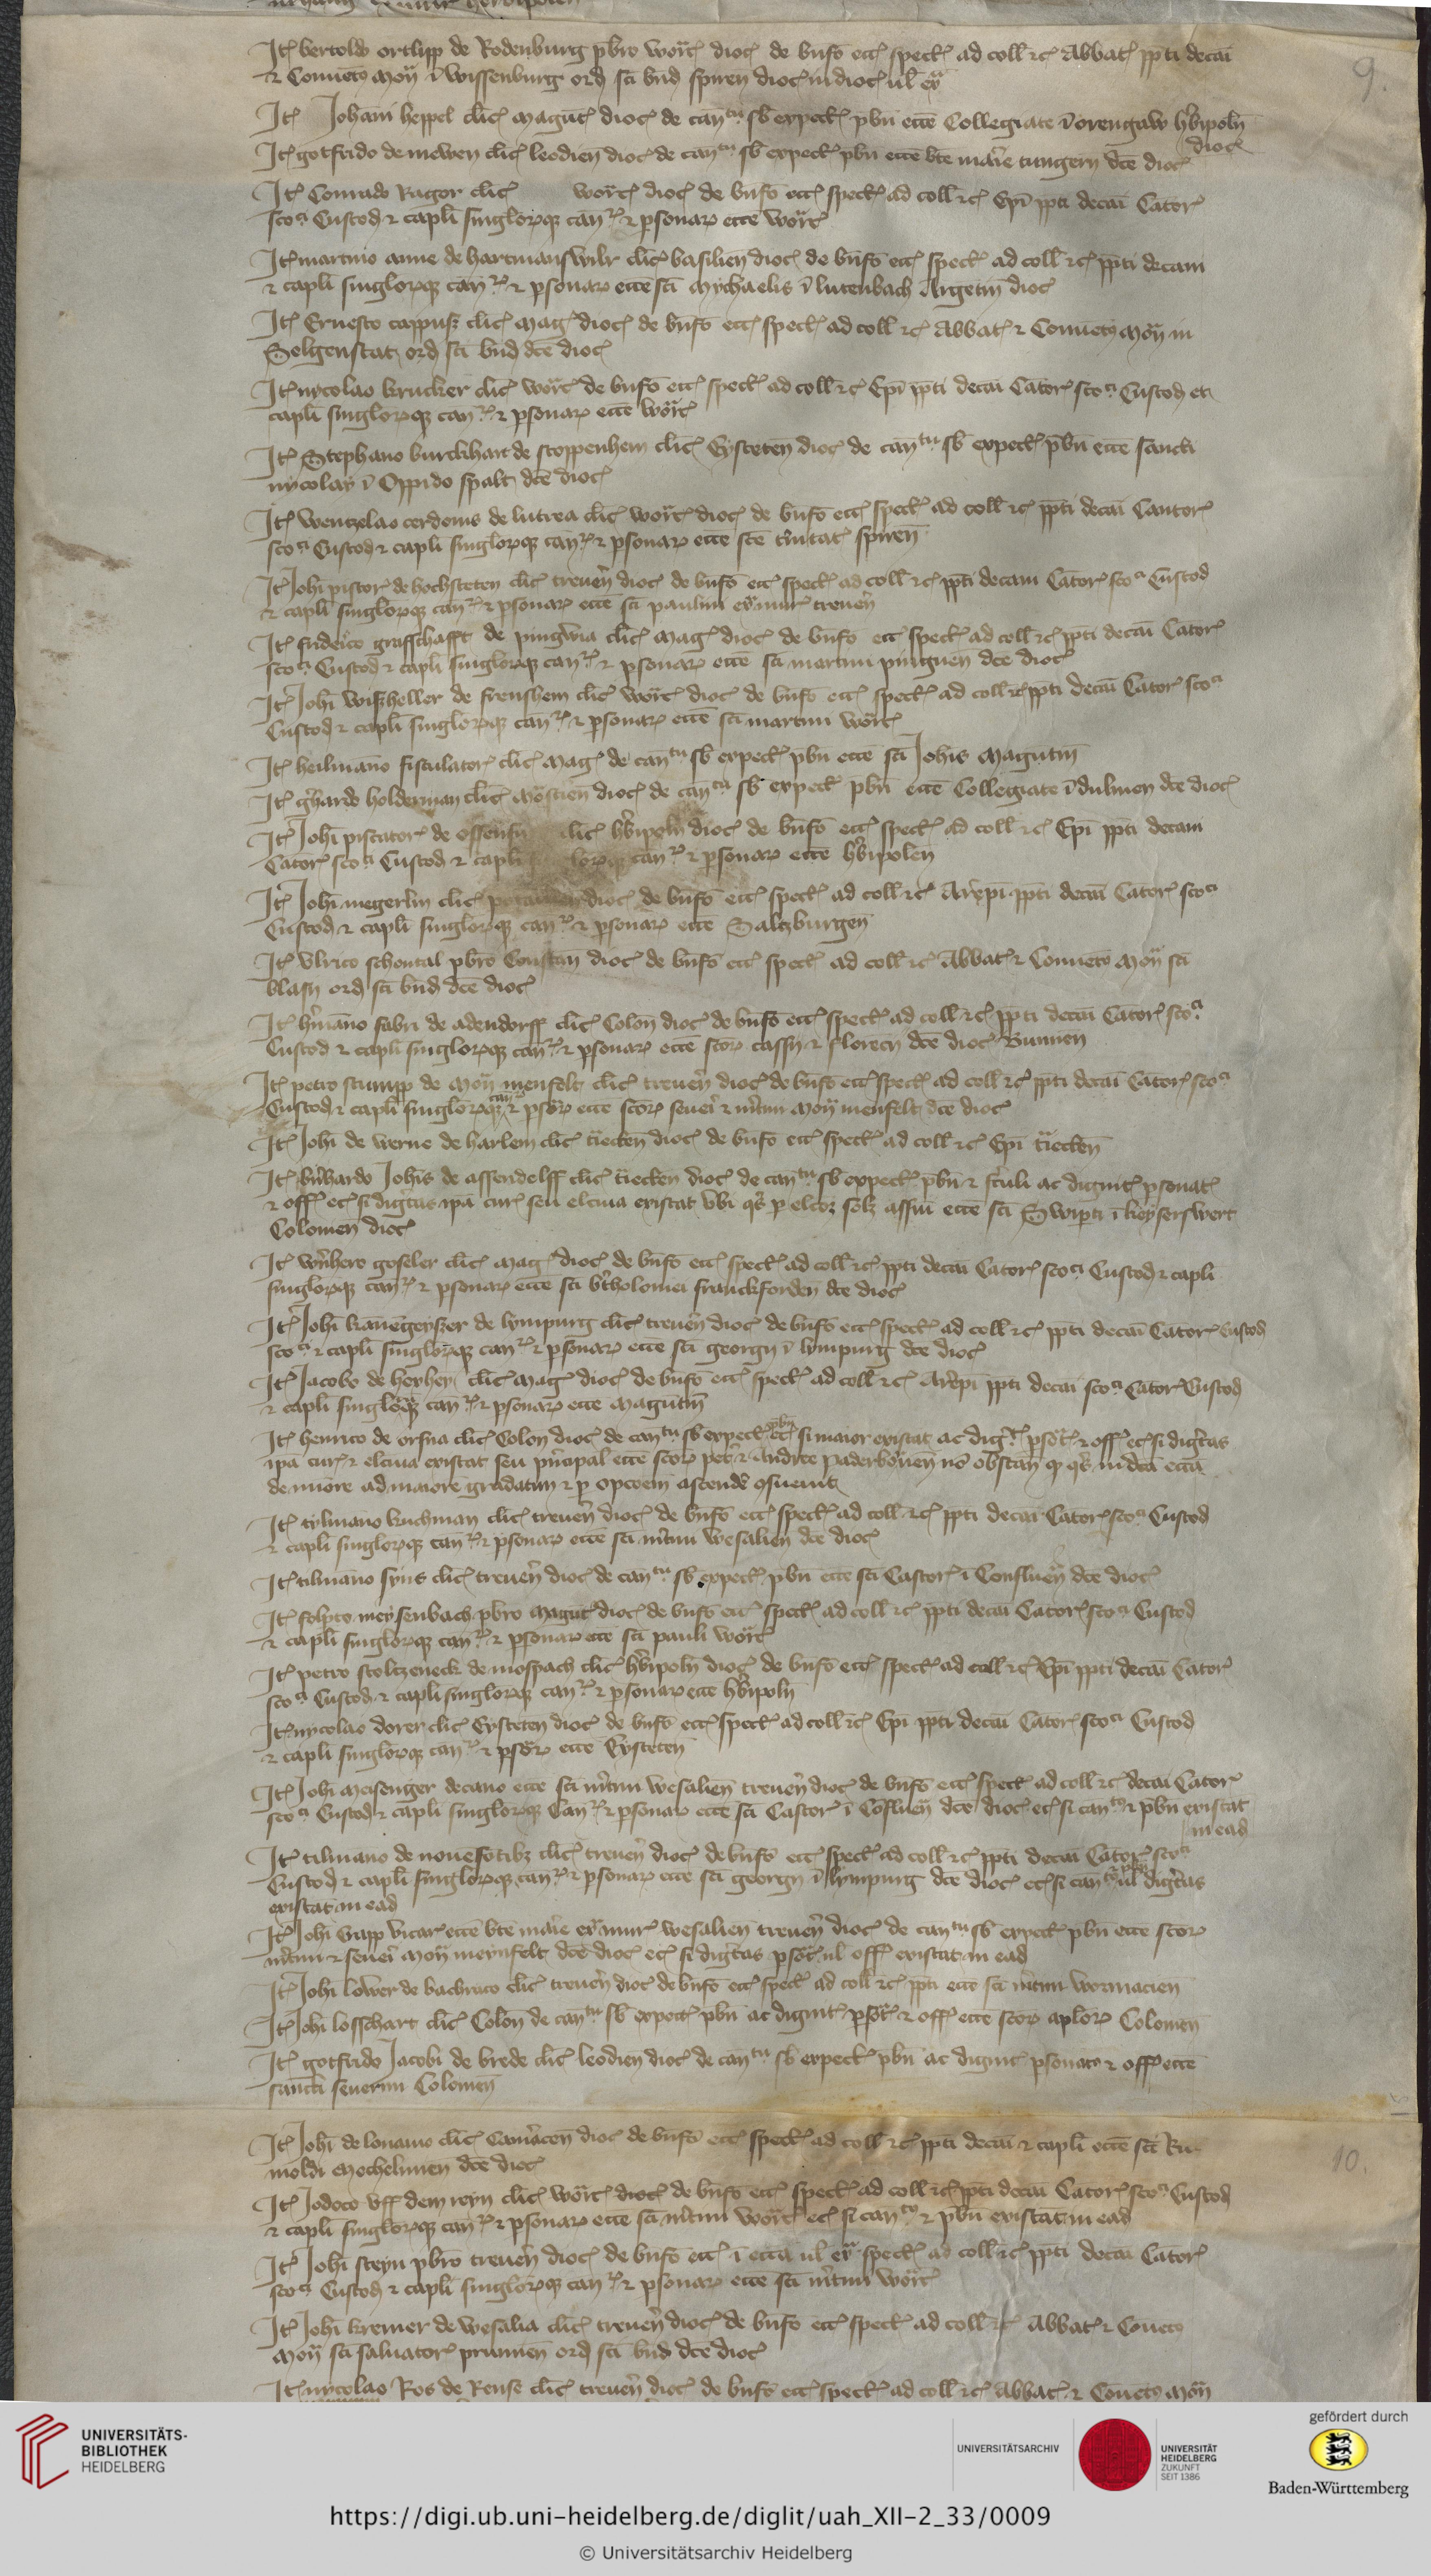 9.
Itꝫ bertoldo ortlipp de Rodenburg pbro Worꝫ dioc de bnfo ecc spect ad coll etc Abbat ppti decani
et Conuento moii i wissenburg ord sci bnd spiren dioc in dioc ul ex
Itꝫ Johani heppel clic magut dioc de cantu sb expect pbn ecce Collegiate i orengaw hbipoln
dioc
Itꝫ gotfrido de mewen clic leodien dioc de cantu sb expect pbn ecce bte marie tungern dce dioc
Itꝫ Conrado Rugor clic worꝫ dioc de bnfo ecc spect ad coll etc Epi ppti decani Cator
sco Custod et capli singlorqꝫ can et psonar ecce worꝫ
Itꝫ martino anne de hartmanswilr clic basilien dioc de bnfo ecc spect ad coll etc ppti decani
et capli singlorqꝫ can et psonar ecce sci Mychaelis i lutenbach Argetin dioc
Itꝫ Ernesto cappusz clic mag dioc de bnfo ecc spect ad coll etc Abbat et Conueto moii in
Selgenstat ord sci bnd dce dioc
Itꝫ nycolao krucker clic worꝫ de bnfo ecc spect ad coll etc Epi ppti decani Cator sco Custod et
capli singlorqꝫ can et psonar ecce worꝫ
Itꝫ Stephano burckhart de stoppenhem clic Eysteten dioc de cantu sb expect pbn ecce sancti
nycolay i Oppido spalt dce dioc
Itꝫ wentzelao cerdonis de lutrea clic worꝫ dioc de bnfo ecc spect ad coll etc ppti decani Cantor
sco Custod et capli singlorqꝫ can et psonar ecce sce trinitat spiren
Itꝫ Johi pistor de hochsteten clic treuern dioc de bnfo ecc spect ad coll etc ppti decani Cator sco Custod
et capli singlorqꝫ can et psonar ecce sci paulini ex mur treuern
Itꝫ frideico graffschafft de pingwia clic mag dioc de bnfo ecc spect ad coll etc ppti decani Cator
sco Custod et capli singlorqꝫ can et psonar ecce sci martini pinguen dce dioc
Itꝫ Johi wiszheller de frenshem clic worꝫ dioc de bnfo ecc spect ad coll etc ppti decani Cator sco
Custod et capli singlorqꝫ can et psonar ecce sci martini worꝫ
Itꝫ heilmano fistulator clic mag de cantu sb expect pbn ecce sci Johis magutin
Itꝫ ghardo holderman clic mostien dioc de cantu sb expect pbn ecce Collegiate i dulmen dce dioc
Itꝫ Johi piscator de clic hbipoln dioc de bnfo ecc spect ad coll etc Epi ppti decani
Cator sco Custod et capli can et psonar ecce hbipolen
Itꝫ Johi megerlin clic dioc de bnfo ecc spect ad coll etc Arepi ppti decani Cator sco
Custod et capli singlorqꝫ can et psonar ecce Saltzburgen
Itꝫ vlrico schontal pbro Constan dioc de bnfo ecc spect ad coll etc Abbat et Conueto moii sci
blasy ord sci bnd dce dioc
Itꝫ hmano fabri de adendorff clic Colon dioc de bnfo ecc spect ad coll etc ppti decani Cator sco
Custod et capli singlorqꝫ can et psonar ecce scor cassy et florecy dce dioc Bunnen
Itꝫ petro stump de moii menfelt clic treuern dioc de bnfo ecc spect ad coll etc ppti decani Cator sco
Custod et capli singlorqꝫ can et psor ecce scor seueri et mtini moii menfelt dce dioc
Itꝫ Johi de werne de harlem clic tiecten dioc de bnfo ecc spect ad coll etc Epi tiecten
Itꝫ bnhardo Johis de assendelff clic tiecten dioc de cantu sb expect pbn et ac dignit psonat
et off ecc si digtas ipa cur seu elctiua existat vbi p elcoꝫ solꝫ assui ecce sci Swiperti i keyserswert
Colonien dioc
Itꝫ wnhero goseler clic mag dioc de bnfo ecc spect ad coll etc ppti decani Cator sco Custod et capli
singlorqꝫ can et psonar ecce sci btholomei franckforden dce dioc
Itꝫ Johi kanegeyszer de lympurg clic treuern dioc de bnfo ecc spect ad coll etc ppti decani Cator Custod
sco et capli singlorqꝫ can et psonar ecce sci georgy i lympurg dce dioc
Itꝫ Jacobo de heyhey clic mag dioc de bnfo ecc spect ad coll etc Arepi ppti decani sco Cator Custod
et capli singlorqꝫ can et psonar ecce magutin
Itꝫ henrico de orsna clic Colon dioc de cantu sb expect pbn si maior existat ac dig psot et off ecc si digtas
ipa cur et elctiua existat seu pncipal ecce scor pet et Andree paderbornen no obstan qꝫ in dca ecca
de miore ad maiore gradatim et p opcoem ascende osueuit
Itꝫ tylmano kuchman clic treuern dioc de bnfo ecc spect ad coll etc ppti decani Cator sco Custod
et capli singlorqꝫ can et psonar ecce sci mtini wesalien dce dioc
Itꝫ tilmano syns clic treuern dioc de cantu sb expect pbn ecce sci Castor i Confluen dce dioc
Itꝫ folpto meysenbach pbro magut dioc de bnfo ecc spect ad coll etc ppti decani Cator sco Custod
et capli singlorqꝫ can et psonar ecce sci pauli worꝫ
Itꝫ petro stoltzeneck de mospach clic hbipoln dioc de bnfo ecc spect ad coll etc Epi ppti decani Cator
sco Custod et capli singlorqꝫ can et psonar ecce hbipoln
Itꝫ nycolao dorer clic Eysteten dioc de bnfo ecc spect ad coll etc Epi ppti decani Cator sco Custod
et capli singlorqꝫ can et psor ecce Eysteten
Itꝫ Johi meisenger decano ecce sci mtini wesalien treuern dioc de bnfo ecc spect ad coll etc decani Cator
sco Custod et capli singlorqꝫ Can et psonar ecce sci Castor i Cofluen dce dioc ecc si cantu et pbn existat
in ead
Itꝫ tilmano de nouefotibꝫ clic treuern dioc de bnfo ecc spect ad coll etc ppti decani Cator sco
Custod et capli singlorqꝫ can et psonar ecce sci georgy i lympurg dce dioc ecc si can ul digtas
existat in ead
Itꝫ Johi Gapp vicar ecce bte marie ex mur wesalien treuern dioc de cantu sb expect pbn ecce scor
mtini et seueri moii meynfelt dce dioc ecc si digtas psot ul off existat in ead
Itꝫ Johi lower de bachraco clic treuern dioc de bnfo ecc spect ad coll etc ppti ecce sci mtini wormacien
Itꝫ Johi losschart clic Colon de cantu sb expect pbn ac dignit psot et off ecce scor aplor Colonien
Itꝫ gotfrido Jacobi de brede clic leodien dioc de cantu sb expect pbn ac dignit psonat et off ecce
sancti seuerini Colonien
10.
Itꝫ Johi de louanio clic Camacen dioc de bnfo ecc spect ad coll etc ppti decani et capli ecce sci Ru
moldi mechelinien dce dioc
Itꝫ Jodoco vff dem reyn clic worꝫ dioc de bnfo ecc spect ad coll etc ppti decani Cator sco Custod
et capli singlorqꝫ can et psonar ecce sci mtini worꝫ ecc si cantu et pbn existat in ead
Itꝫ Johi steyn pbro treuern dioc de bnfo ecc i ecca ul ex spect ad coll etc ppti decani Cator
sco Custod et capli singlorqꝫ can et psonar ecce sci mtini worꝫ
Itꝫ Johi kremer de wesalia clic treuern dioc de bnfo ecc spect ad coll etc Abbat et Coueto
moii sci saluator prumien ord sci bnd dce dioc
Itꝫ nycolao Ros de Rense clic treuern dioc de bnfo ecc spect ad coll etc Abbat et Coueto moii
UNIVERSITÄTS-
BIBLIOTHEK
HEIDELBERG
UNIVERSITÄTSARCHIV
UNIVERSITÄT
HEIDELBERG
ZUKUNFT
SEIT 1386
gefördert durch
Baden-Württemberg
https://digi.ub.uni-heidelberg.de/diglit/uah_XII-2_33/0009
© Universitätsarchiv Heidelberg